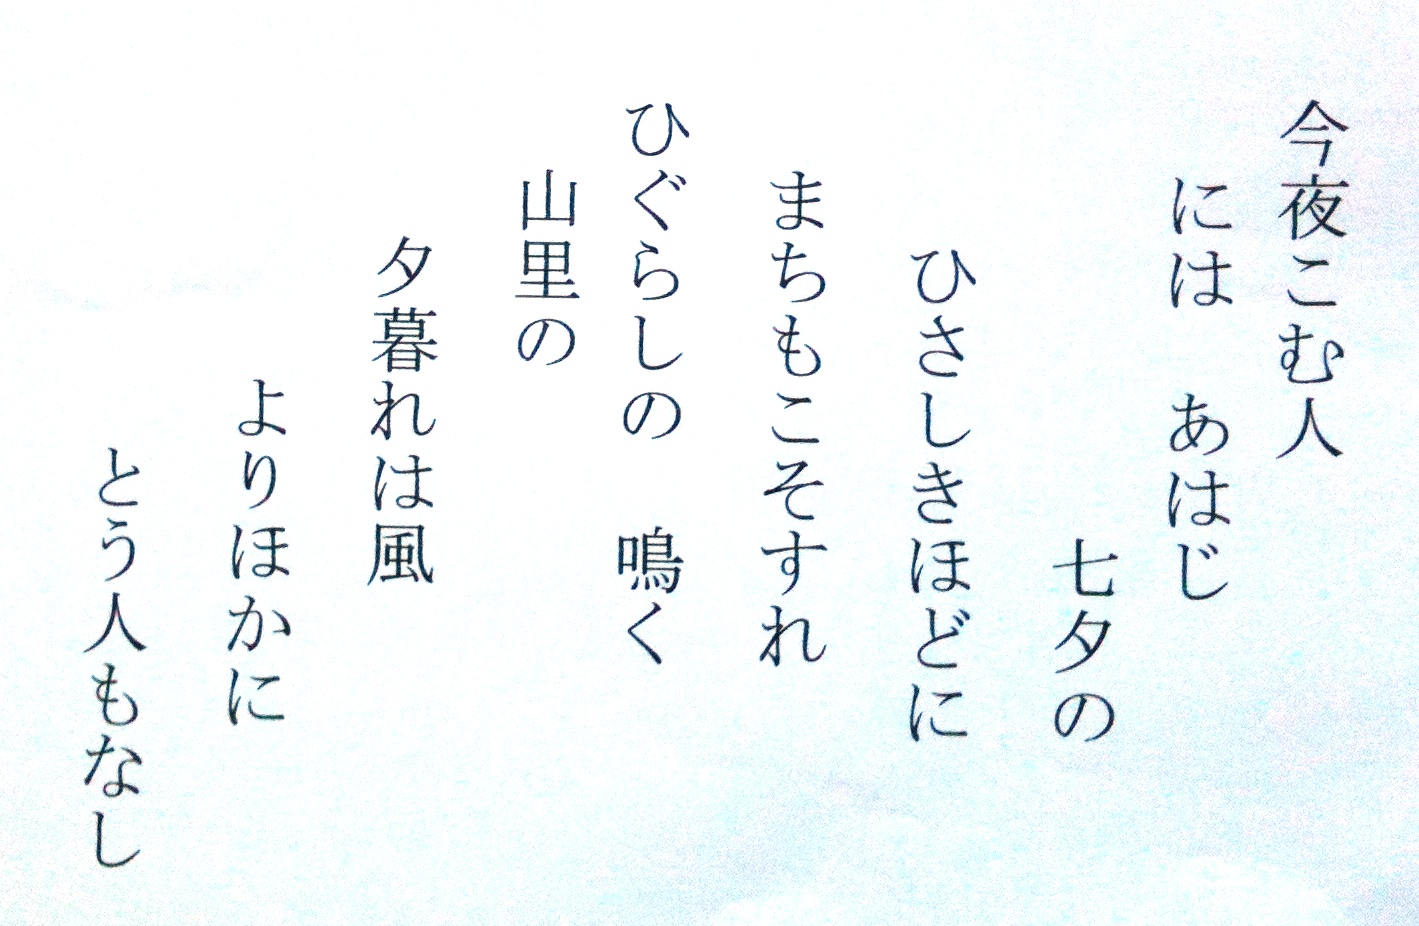 今夜こむ人
には　あはじ
七夕の
ひさしきほどに
まちもこそすれ
ひぐらしの　鳴く
山里の
夕暮れは風
よりほかに
とう人もなし